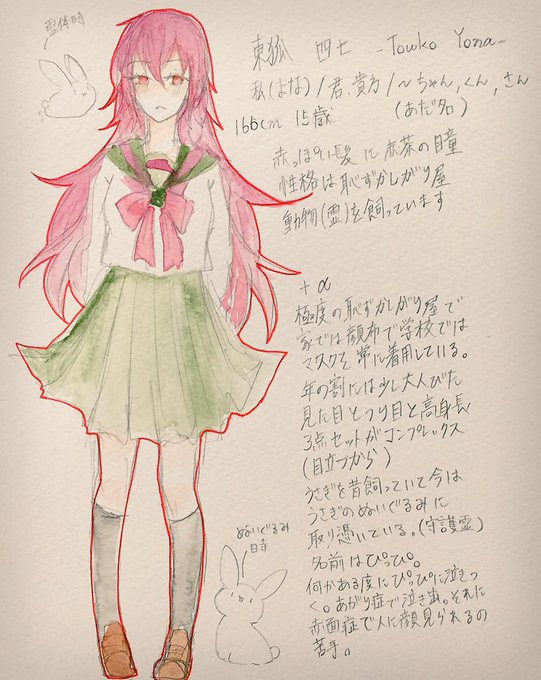 霊体時
東狐 四七 -Touko Yona-
私(よな)/君,貴方/〜ちゃん,くん,さん
(あだ名)
166cm 15歳
赤っぽい髪に赤茶の目瞳
性格は恥ずかしがり屋
動物(霊)を飼っています
+α
極度の恥ずかしがり屋で
家では顔布で学校では
マスクを常に着用している。
年の割には少し大人びた
見た目とつり目と高身長
3点セットがコンプレックス
(目立つから)
うさぎを昔飼っていて今は
うさぎのぬいぐるみに
取り憑いている。(守護霊)
名前はぴっぴ。
何かある度にぴっぴに泣きつ
く。あがり症で泣き虫。それに
赤面症で人に顔見られるの
苦手。
ぬいぐるみ
時